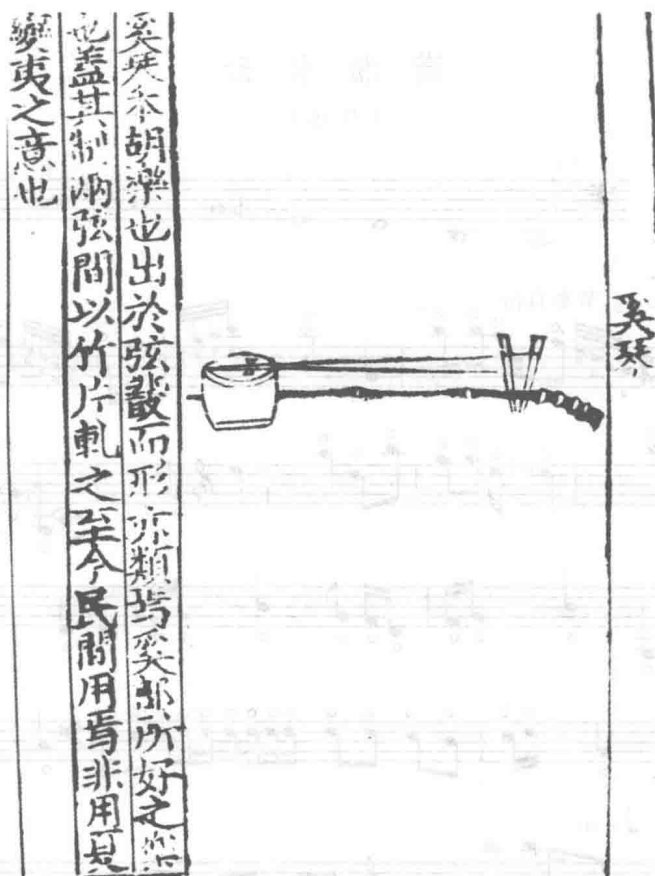 奚琴
奚琴本胡樂也出於弦鼗而形亦類焉奚部所好之樂
也盖其制兩弦間以竹片軋之至今民間用焉非用夏
變夷之意也